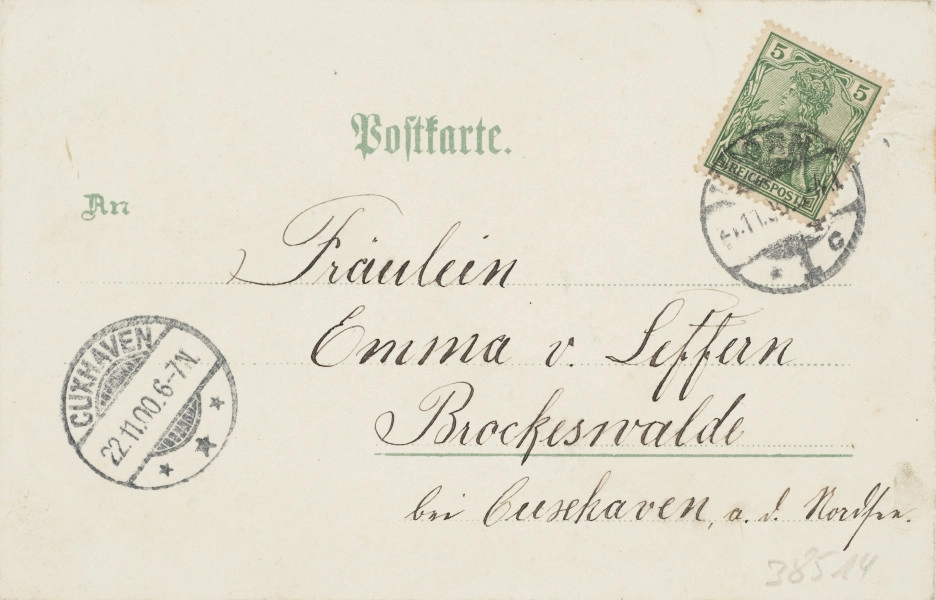 5 5
REICHSPOST
Postkarte.
An
Fräulein
Emma v. Seffern
Brockeswalde
bei Cuxhaven, a. d. Nordsee.
CUXHAVEN
22.11.00.6-7N.
c
38514